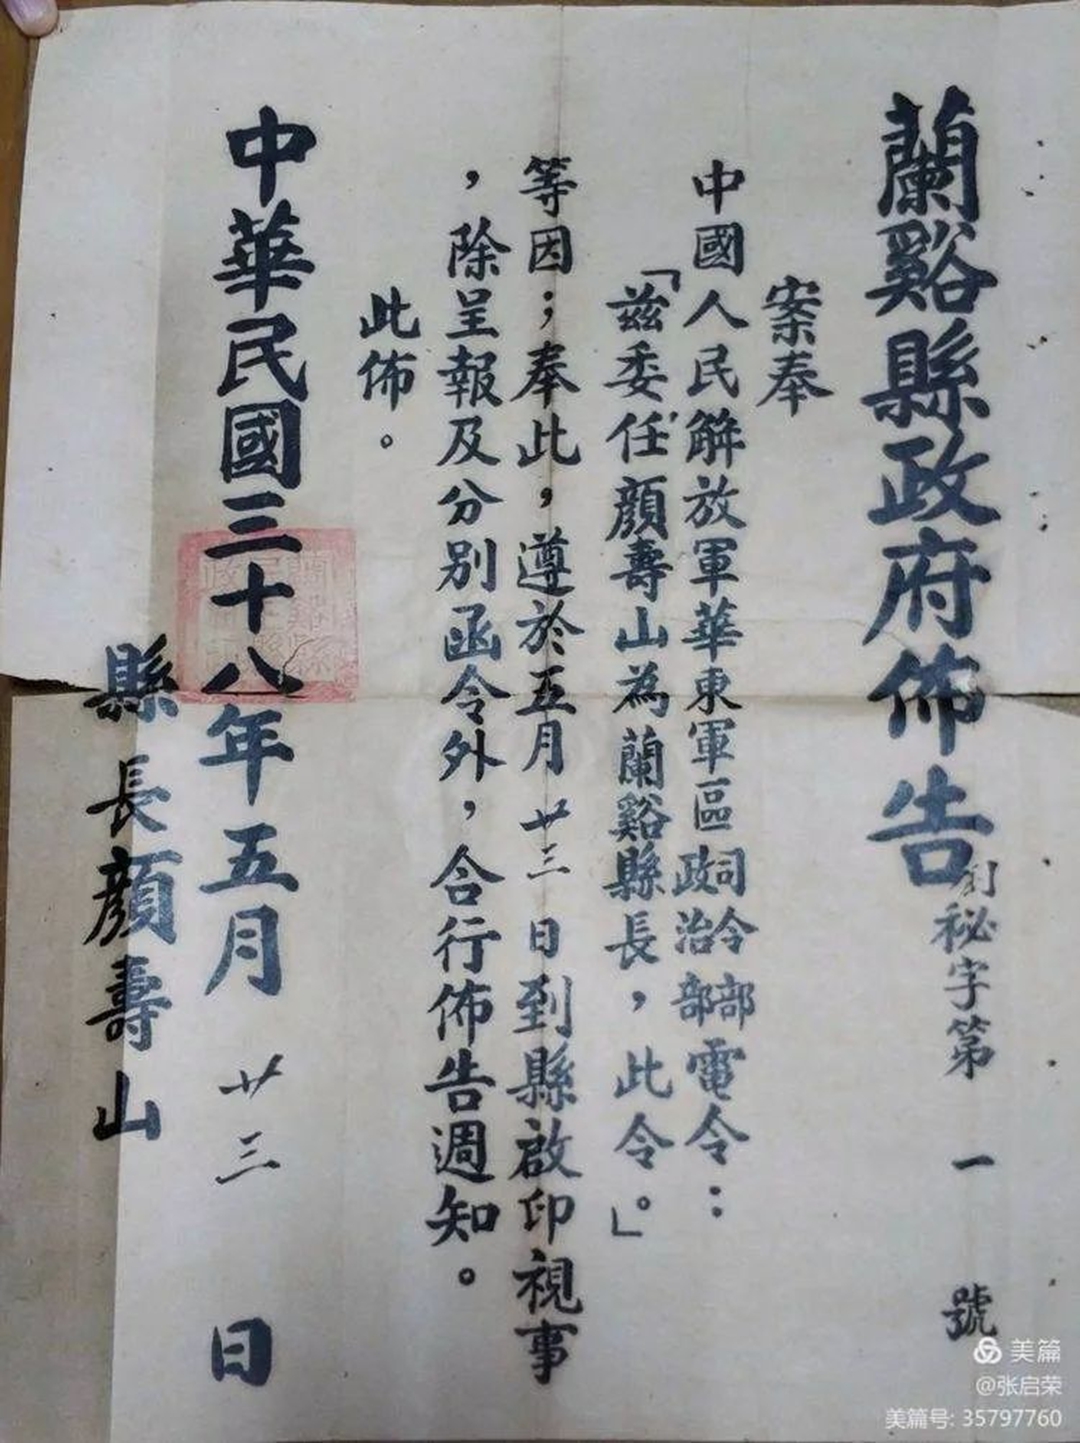 蘭谿縣政府佈告
秘字第一號
案奉
中國人民解放軍華東軍區司令部政治部電令：
「茲委任顏壽山為蘭谿縣長，此令。」
等因；奉此，遵於五月廿三日到縣啟印視事
，除呈報及分別函令外，合行佈告週知。
此佈。
中華民國三十八年五月廿三日
縣長顏壽山
美篇
@张启荣
美篇号: 35797760